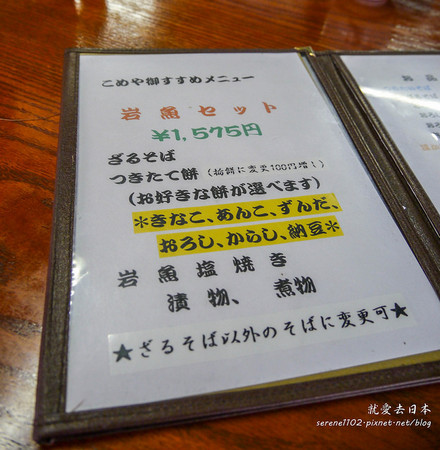 こめや御すすめメニュー
岩魚セット
¥1,575円
ざるそば
つきたて餅 (栃餅に変更100円増し)
(お好きな餅が選べます)
*きなこ、あんこ、ずんだ、
おろし、からし、納豆*
岩魚塩焼き
漬物、煮物
★ざるそば以外のそばに変更可★
就愛去日本
serene1102.pixnet.net/blog